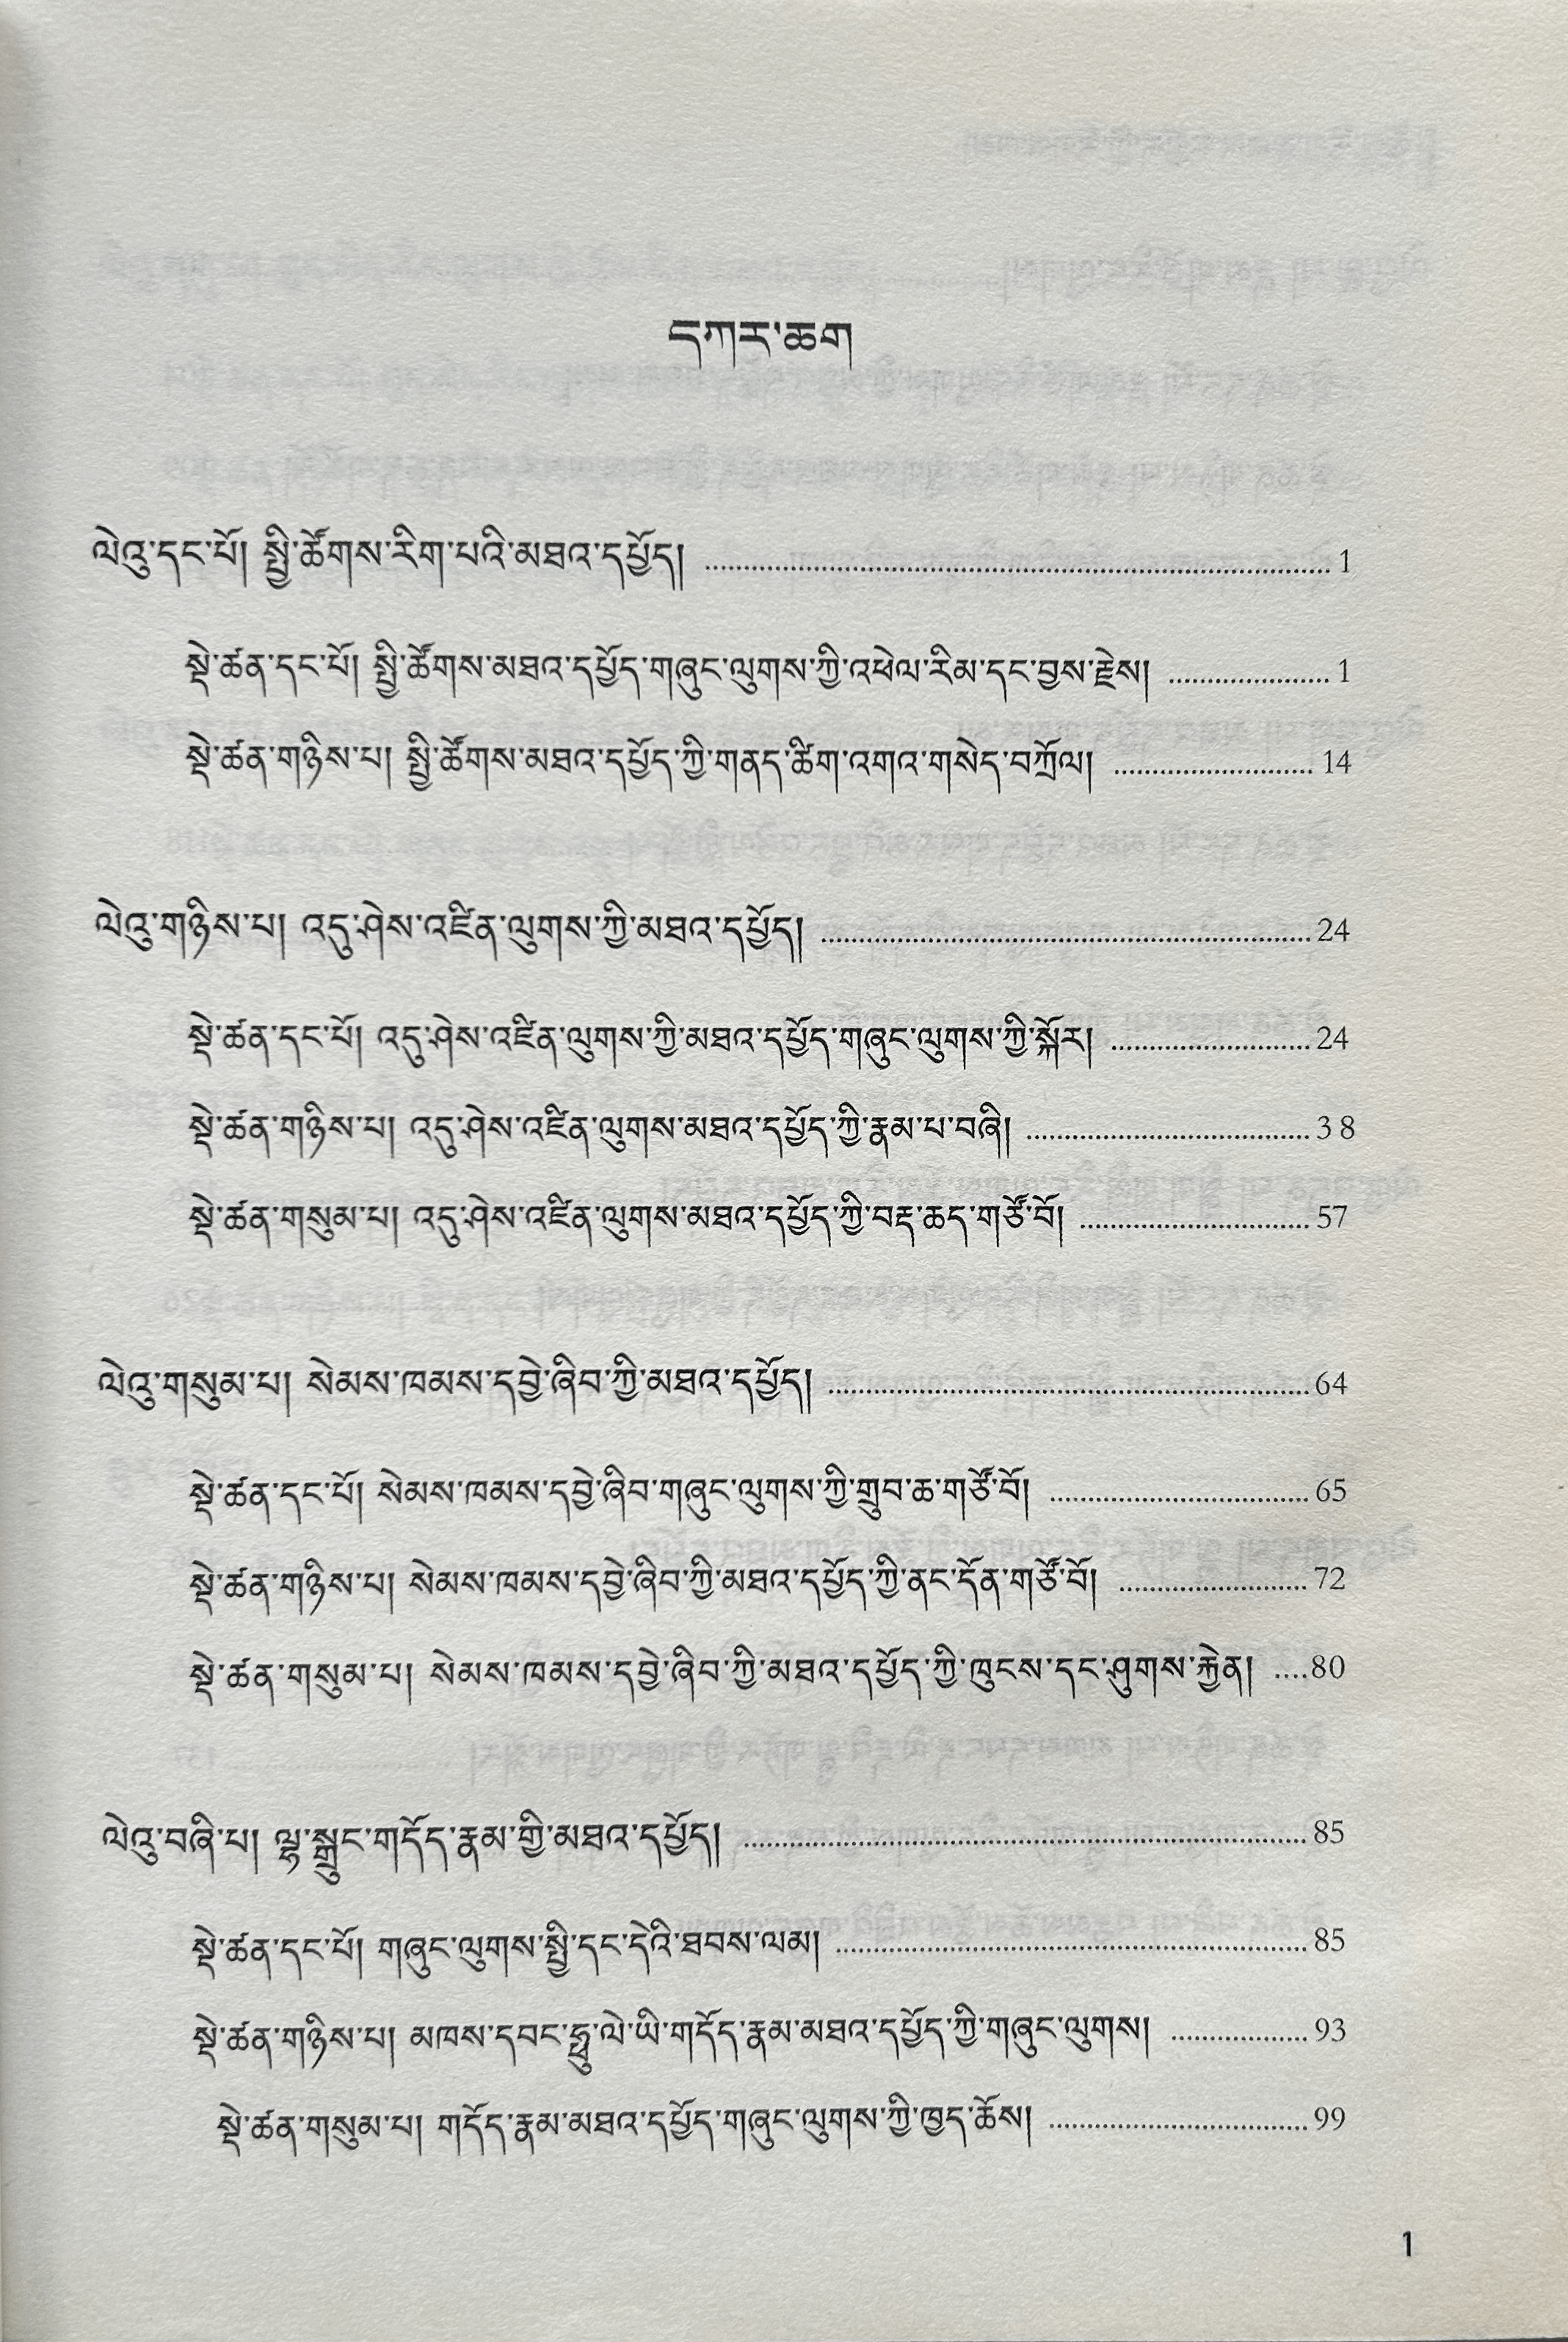 དཀར་ཆག
ལེའུ་དང་པོ། སྤྱི་ཚོགས་རིག་པའི་མཐའ་དཔྱོད། ........ 1
སྡེ་ཚན་དང་པོ། སྤྱི་ཚོགས་མཐའ་དཔྱོད་གཞུང་ལུགས་ཀྱི་འཕེལ་རིམ་དང་བྱས་རྗེས། ........ 1
སྡེ་ཚན་གཉིས་པ། སྤྱི་ཚོགས་མཐའ་དཔྱོད་ཀྱི་གནད་ཚིག་འགའ་གསེད་བཀྲོལ། ........ 14
ལེའུ་གཉིས་པ། འདུ་ཤེས་འཛིན་ལུགས་ཀྱི་མཐའ་དཔྱོད། ........ 24
སྡེ་ཚན་དང་པོ། འདུ་ཤེས་འཛིན་ལུགས་ཀྱི་མཐའ་དཔྱོད་གཞུང་ལུགས་ཀྱི་སྐོར། ........ 24
སྡེ་ཚན་གཉིས་པ། འདུ་ཤེས་འཛིན་ལུགས་མཐའ་དཔྱོད་ཀྱི་རྣམ་པ་བཞི། ........ 38
སྡེ་ཚན་གསུམ་པ། འདུ་ཤེས་འཛིན་ལུགས་མཐའ་དཔྱོད་ཀྱི་བརྡ་ཆད་གཙོ་བོ། ........ 57
ལེའུ་གསུམ་པ། སེམས་ཁམས་དབྱེ་ཞིབ་ཀྱི་མཐའ་དཔྱོད། ........ 64
སྡེ་ཚན་དང་པོ། སེམས་ཁམས་དབྱེ་ཞིབ་གཞུང་ལུགས་ཀྱི་གྲུབ་ཆ་གཙོ་བོ། ........ 65
སྡེ་ཚན་གཉིས་པ། སེམས་ཁམས་དབྱེ་ཞིབ་ཀྱི་མཐའ་དཔྱོད་ཀྱི་ནང་དོན་གཙོ་བོ། ........ 72
སྡེ་ཚན་གསུམ་པ། སེམས་ཁམས་དབྱེ་ཞིབ་ཀྱི་མཐའ་དཔྱོད་ཀྱི་ཁུངས་དང་ཤུགས་རྐྱེན། ....80
ལེའུ་བཞི་པ། ལྷ་སྒྲུང་གདོད་རྣམ་གྱི་མཐའ་དཔྱོད། ........ 85
སྡེ་ཚན་དང་པོ། གཞུང་ལུགས་སྤྱི་དང་དེའི་ཐབས་ལམ། ........ 85
སྡེ་ཚན་གཉིས་པ། མཁས་དབང་ཧྥུ་ལེ་ཡི་གདོད་རྣམ་མཐའ་དཔྱོད་ཀྱི་གཞུང་ལུགས། ........ 93
སྡེ་ཚན་གསུམ་པ། གདོད་རྣམ་མཐའ་དཔྱོད་གཞུང་ལུགས་ཀྱི་ཁྱད་ཆོས། ........ 99
1